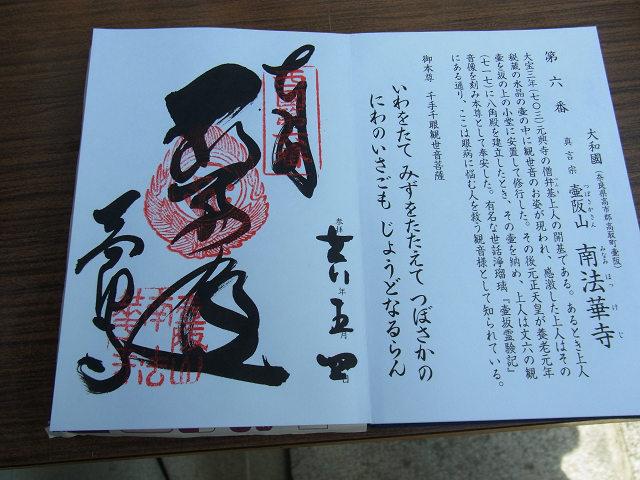 第六番
大和國 (奈良県高市郡高取町壷阪)
真言宗 壷阪山 南法華寺
つぼさかさん みなみ ほっ け じ
大宝三年(七〇三)元興寺の僧弁基上人の開基である。あるとき上人
秘蔵の水晶の壷の中に観世音のお姿が現われ、感激した上人はその
壷を坂の上の小堂に安置して修行した。その後元正天皇が養老元年
(七一七)に八角殿を建立したとき、その壷を納め、上人は丈六の観
音像を刻み本尊として奉安した。有名な世話浄瑠璃『壷坂霊験記』
にある通り、ここは眼病に悩む人を救う観音様として知られている。
御本尊 千手千眼観世音菩薩
いわをたて みずをたたえて つぼさかの
にわのいさごも じょうどなるらん
参拝
年五月四日
奉拝